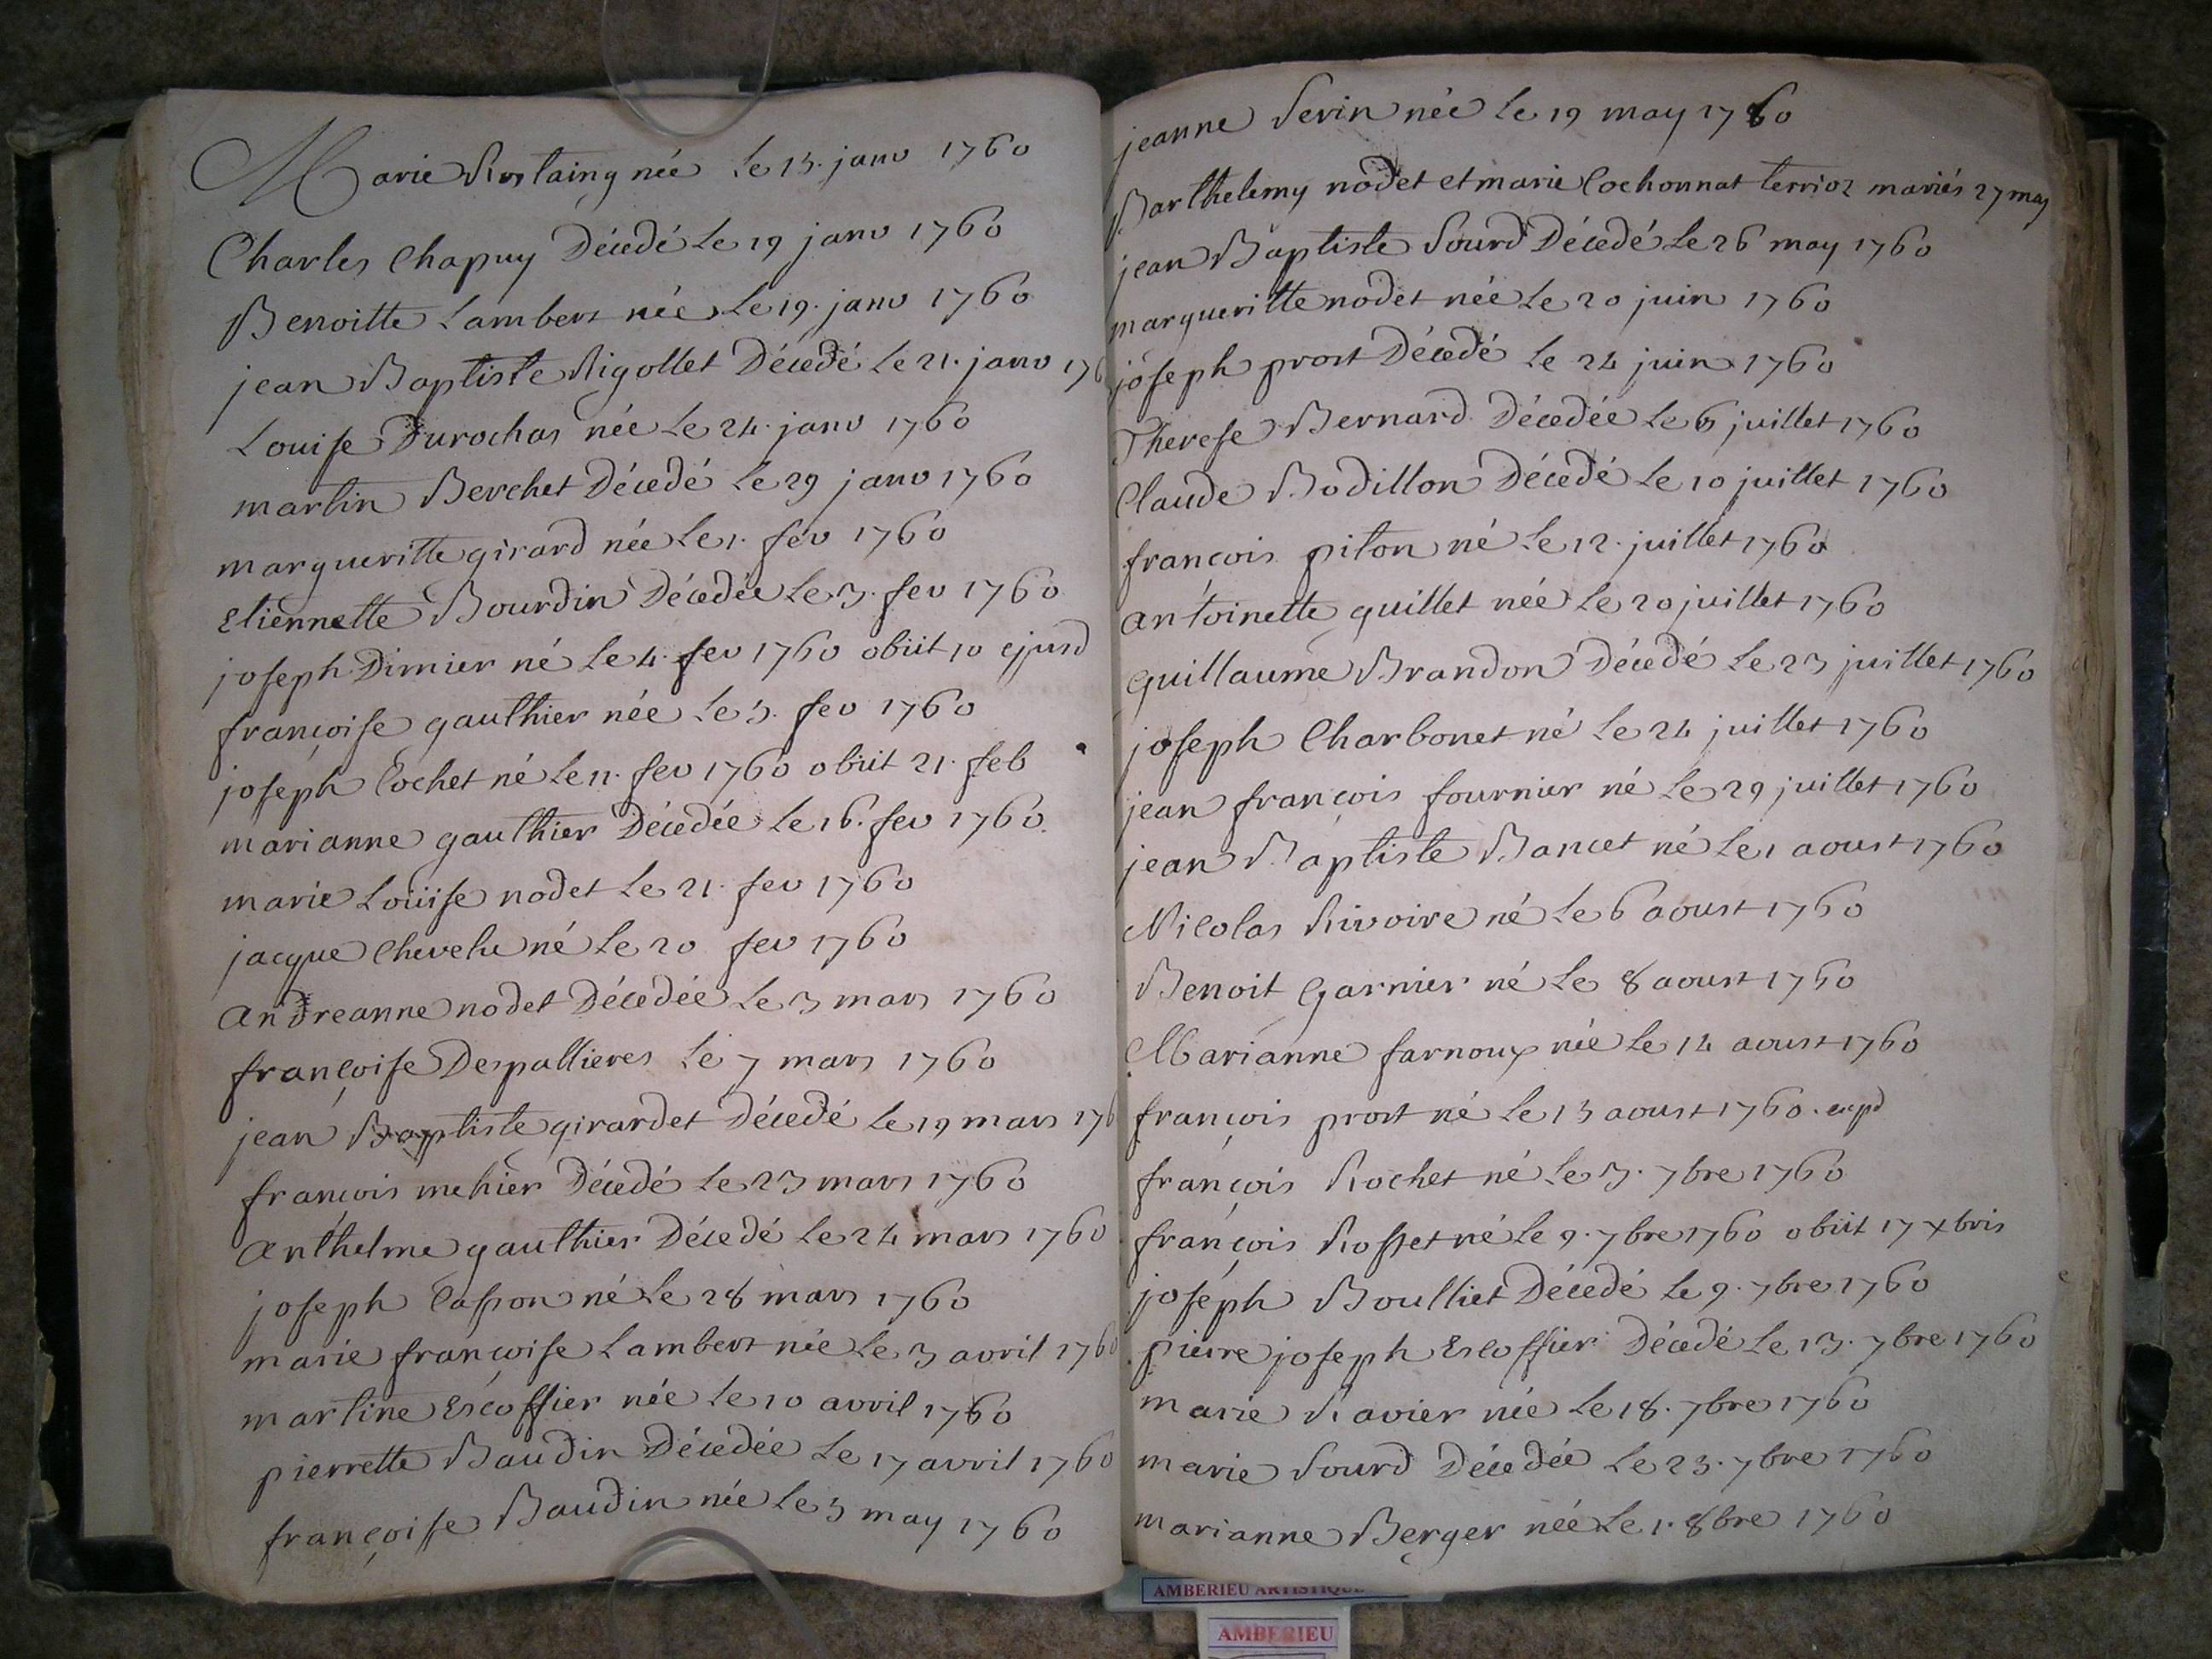 Marie Rostaing née le 13. janv 1760
Charles Chapuy Décedé le 19 janv 1760
Benoitte Lambert née le 19. janv 1760
jean Baptiste Rigollet Décedé le 21. janv 176
Louise Durochas née le 24. janv 1760
martin Berchet Décedé le 29 janv 1760
margueritte girard née le 1. fev 1760
Etiennette Bourdin Décedée le 3. fev 1760
joseph Dimier né le 4. fev 1760 obiit 10 ejusd
françoise gauthier née le 5. fev 1760
joseph Cochet né le 11. fev 1760 obiit 21. feb
marianne gauthier Décedée le 16. fev 1760
marie Loüise nodet le 21. fev 1760
jacque Chevelu né le 20 fev 1760
Andreanne nodet Décedée le 3 mars 1760
françoise Despallieres le 7 mars 1760
jean Baptiste girardet Décedé le 19 mars 176
françois mehier Décedé le 23 mars 1760
Anthelme gauthier Décedé le 24 mars 1760
joseph Casson né le 28 mars 1760
marie françoise Lambert née le 3 avril 1760
martine Escoffier née le 10 avril 1760
pierrette Baudin Décedée le 17 avril 1760
françoise Baudin née le 3 may 1760
jeanne Sevin née le 19 may 1760
Barthelemy nodet et marie Cochonnat terrioz mariés 27 may
jean Baptiste Sourd Décedé le 26 may 1760
margueritte nodet née le 20 juin 1760
joseph prost Décedé le 24 juin 1760
Therese Bernard Décedée le 6 juillet 1760
Claude Bodillon Décedé le 10 juillet 1760
françois piton né le 12. juillet 1760
antoinette guillet née le 20 juillet 1760
guillaume Brandon Décedé le 23 juillet 1760
joseph Charbonet né le 24 juillet 1760
jean françois fournier né le 29 juillet 1760
jean Baptiste Bancet né le 1 aoust 1760
Nicolas Rivoire né le 6 aoust 1760
Benoit Garnier né le 8 aoust 1760
Marianne farnoux née le 14 aoust 1760
françois prost né le 13 aoust 1760. expd
françois Rochet né le 3. 7bre 1760
françois Rosset né le 9. 7bre 1760 obiit 17 xbris
joseph Boulliet Décedé le 9. 7bre 1760
pierre joseph Escoffier Décedé le 13. 7bre 1760
marie Ravier née le 18. 7bre 1760
marie Sourd Décedée le 23. 7bre 1760
marianne Berger née le 1. 8bre 1760
AMBERIEU ARTISTIQUE
AMBERIEU